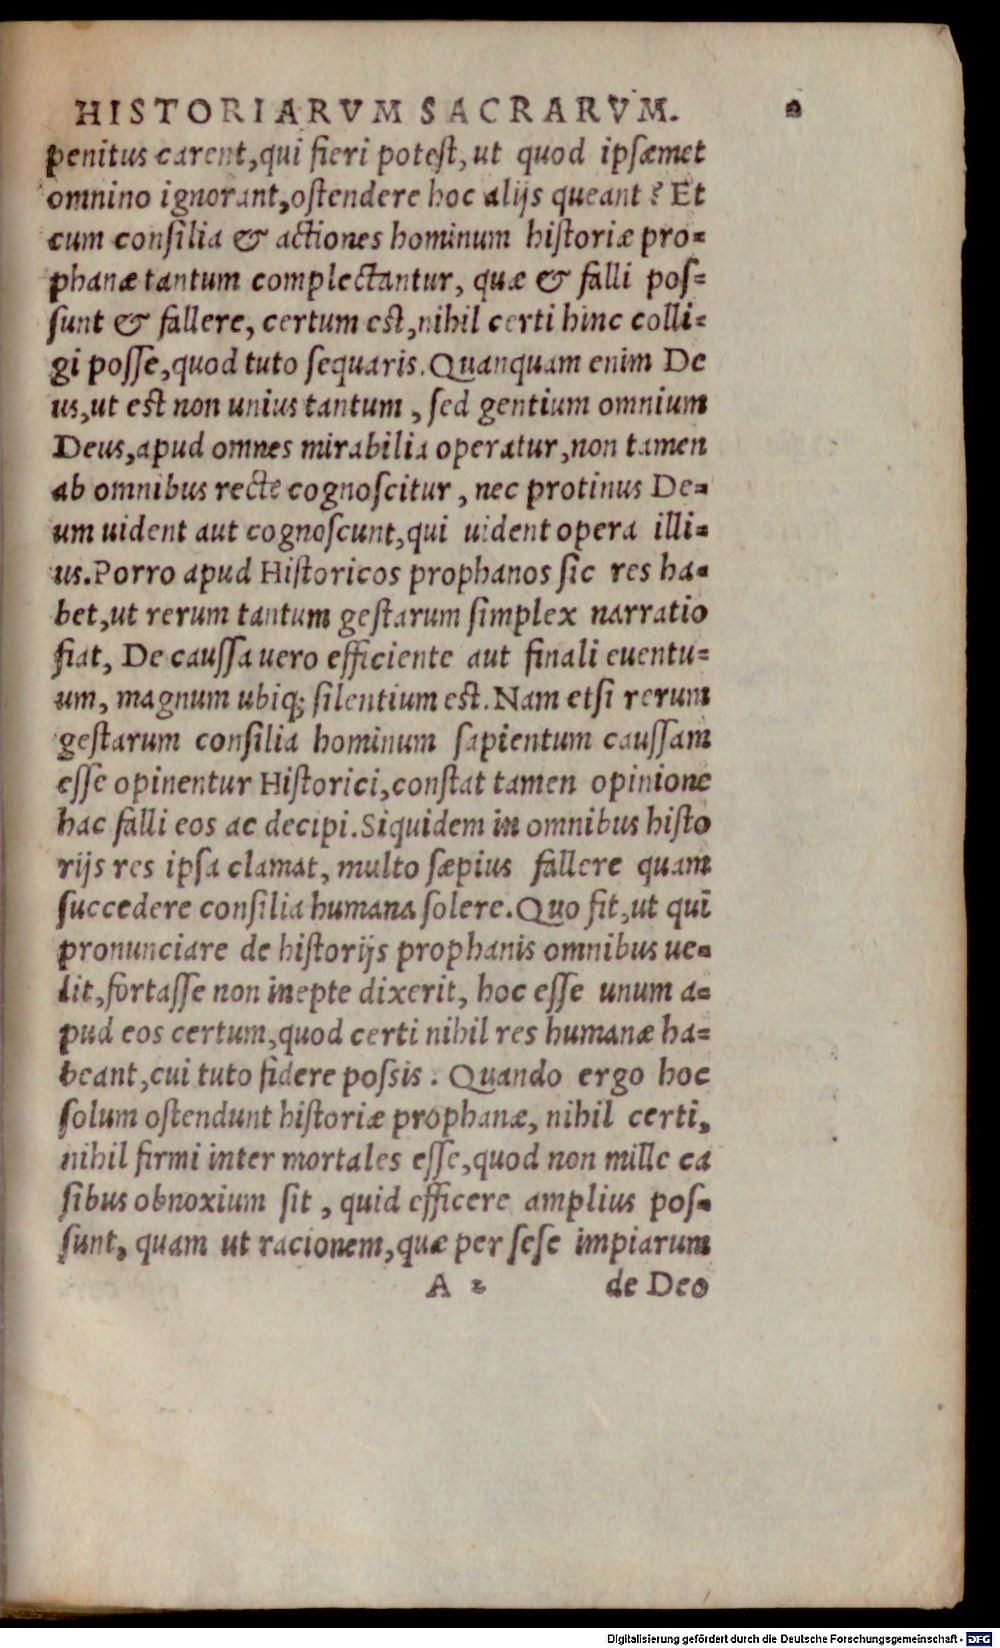 HISTORIARVM SACRARVM. 2
penitus carent, qui fieri potest, ut quod ipsæmet
omnino ignorant, ostendere hoc alijs queant? Et
cum consilia & actiones hominum historiæ pro=
phanæ tantum complectantur, quæ & falli pos=
sunt & fallere, certum est, nihil certi hinc colli=
gi posse, quod tuto sequaris. Quanquam enim De
us, ut est non unius tantum, sed gentium omnium
Deus, apud omnes mirabilia operatur, non tamen
ab omnibus recte cognoscitur, nec protinus De=
um uident aut cognoscunt, qui uident opera illi=
us. Porro apud Historicos prophanos sic res ha=
bet, ut rerum tantum gestarum simplex narratio
fiat, De caussa uero efficiente aut finali euentu=
um, magnum ubiq; silentium est. Nam etsi rerum
gestarum consilia hominum sapientum caussam
esse opinentur Historici, constat tamen opinione
hac falli eos ac decipi. Siquidem in omnibus histo
rijs res ipsa clamat, multo sæpius fallere quam
succedere consilia humana solere. Quo fit, ut qui
pronunciare de historijs prophanis omnibus ue=
lit, fortasse non inepte dixerit, hoc esse unum a=
pud eos certum, quod certi nihil res humanæ ha=
beant, cui tuto fidere possis. Quando ergo hoc
solum ostendunt historiæ prophanæ, nihil certi,
nihil firmi inter mortales esse, quod non mille ca
sibus obnoxium sit, quid efficere amplius pos=
sunt, quam ut racionem, quæ per sese impiarum
A 2 de Deo
Digitalisierung gefördert durch die Deutsche Forschungsgemeinschaft - DFG